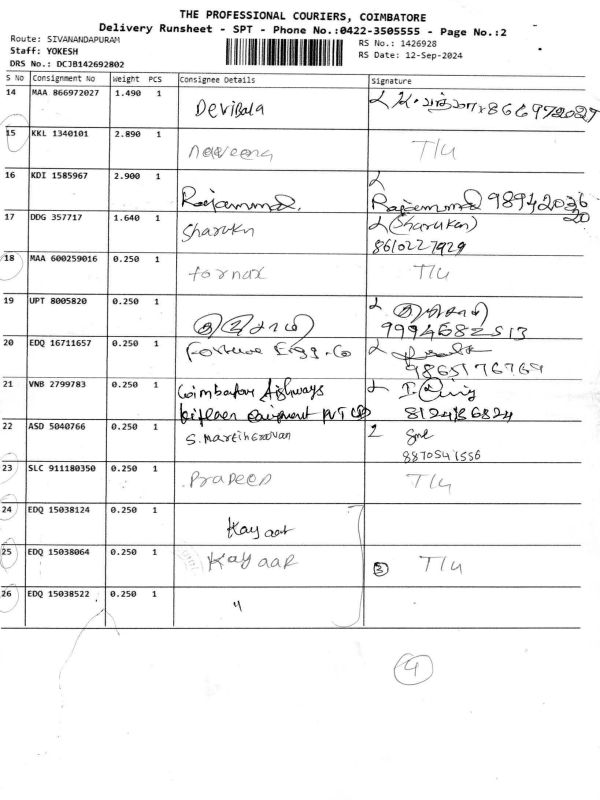 THE PROFESSIONAL COURIERS, COIMBATORE
Delivery Runsheet - SPT - Phone No.:0422-3505555 - Page No.:2
Route: SIVANANDAPURAM
Staff: YOKESH
DRS No.: DCJB142692802
RS No.: 1426928
RS Date: 12-Sep-2024
S No Consignment No Weight PCS Consignee Details Signature
14 MAA 866972027 1.490 1 Devibala 866972027
15 KKL 1340101 2.890 1 naveena T/u
16 KDI 1585967 2.900 1 Rajammal. Rajammal 9894203620
17 DDG 357717 1.640 1 Sharukn (Sharukn)
8610227929
18 MAA 600259016 0.250 1 fornax T/u
19 UPT 8005820 0.250 1
9994682513
20 EDQ 16711657 0.250 1 Fortune Engg. Co
9865176769
21 VNB 2799783 0.250 1 Coimbatore
equipment PVT LTD 8124186824
22 ASD 5040766 0.250 1 S.
8870541556
23 SLC 911180350 0.250 1 Pradeep T/u
24 EDQ 15038124 0.250 1 Kayaar
25 EDQ 15038064 0.250 1 Kayaar 3 T/u
26 EDQ 15038522 0.250 1 "
9